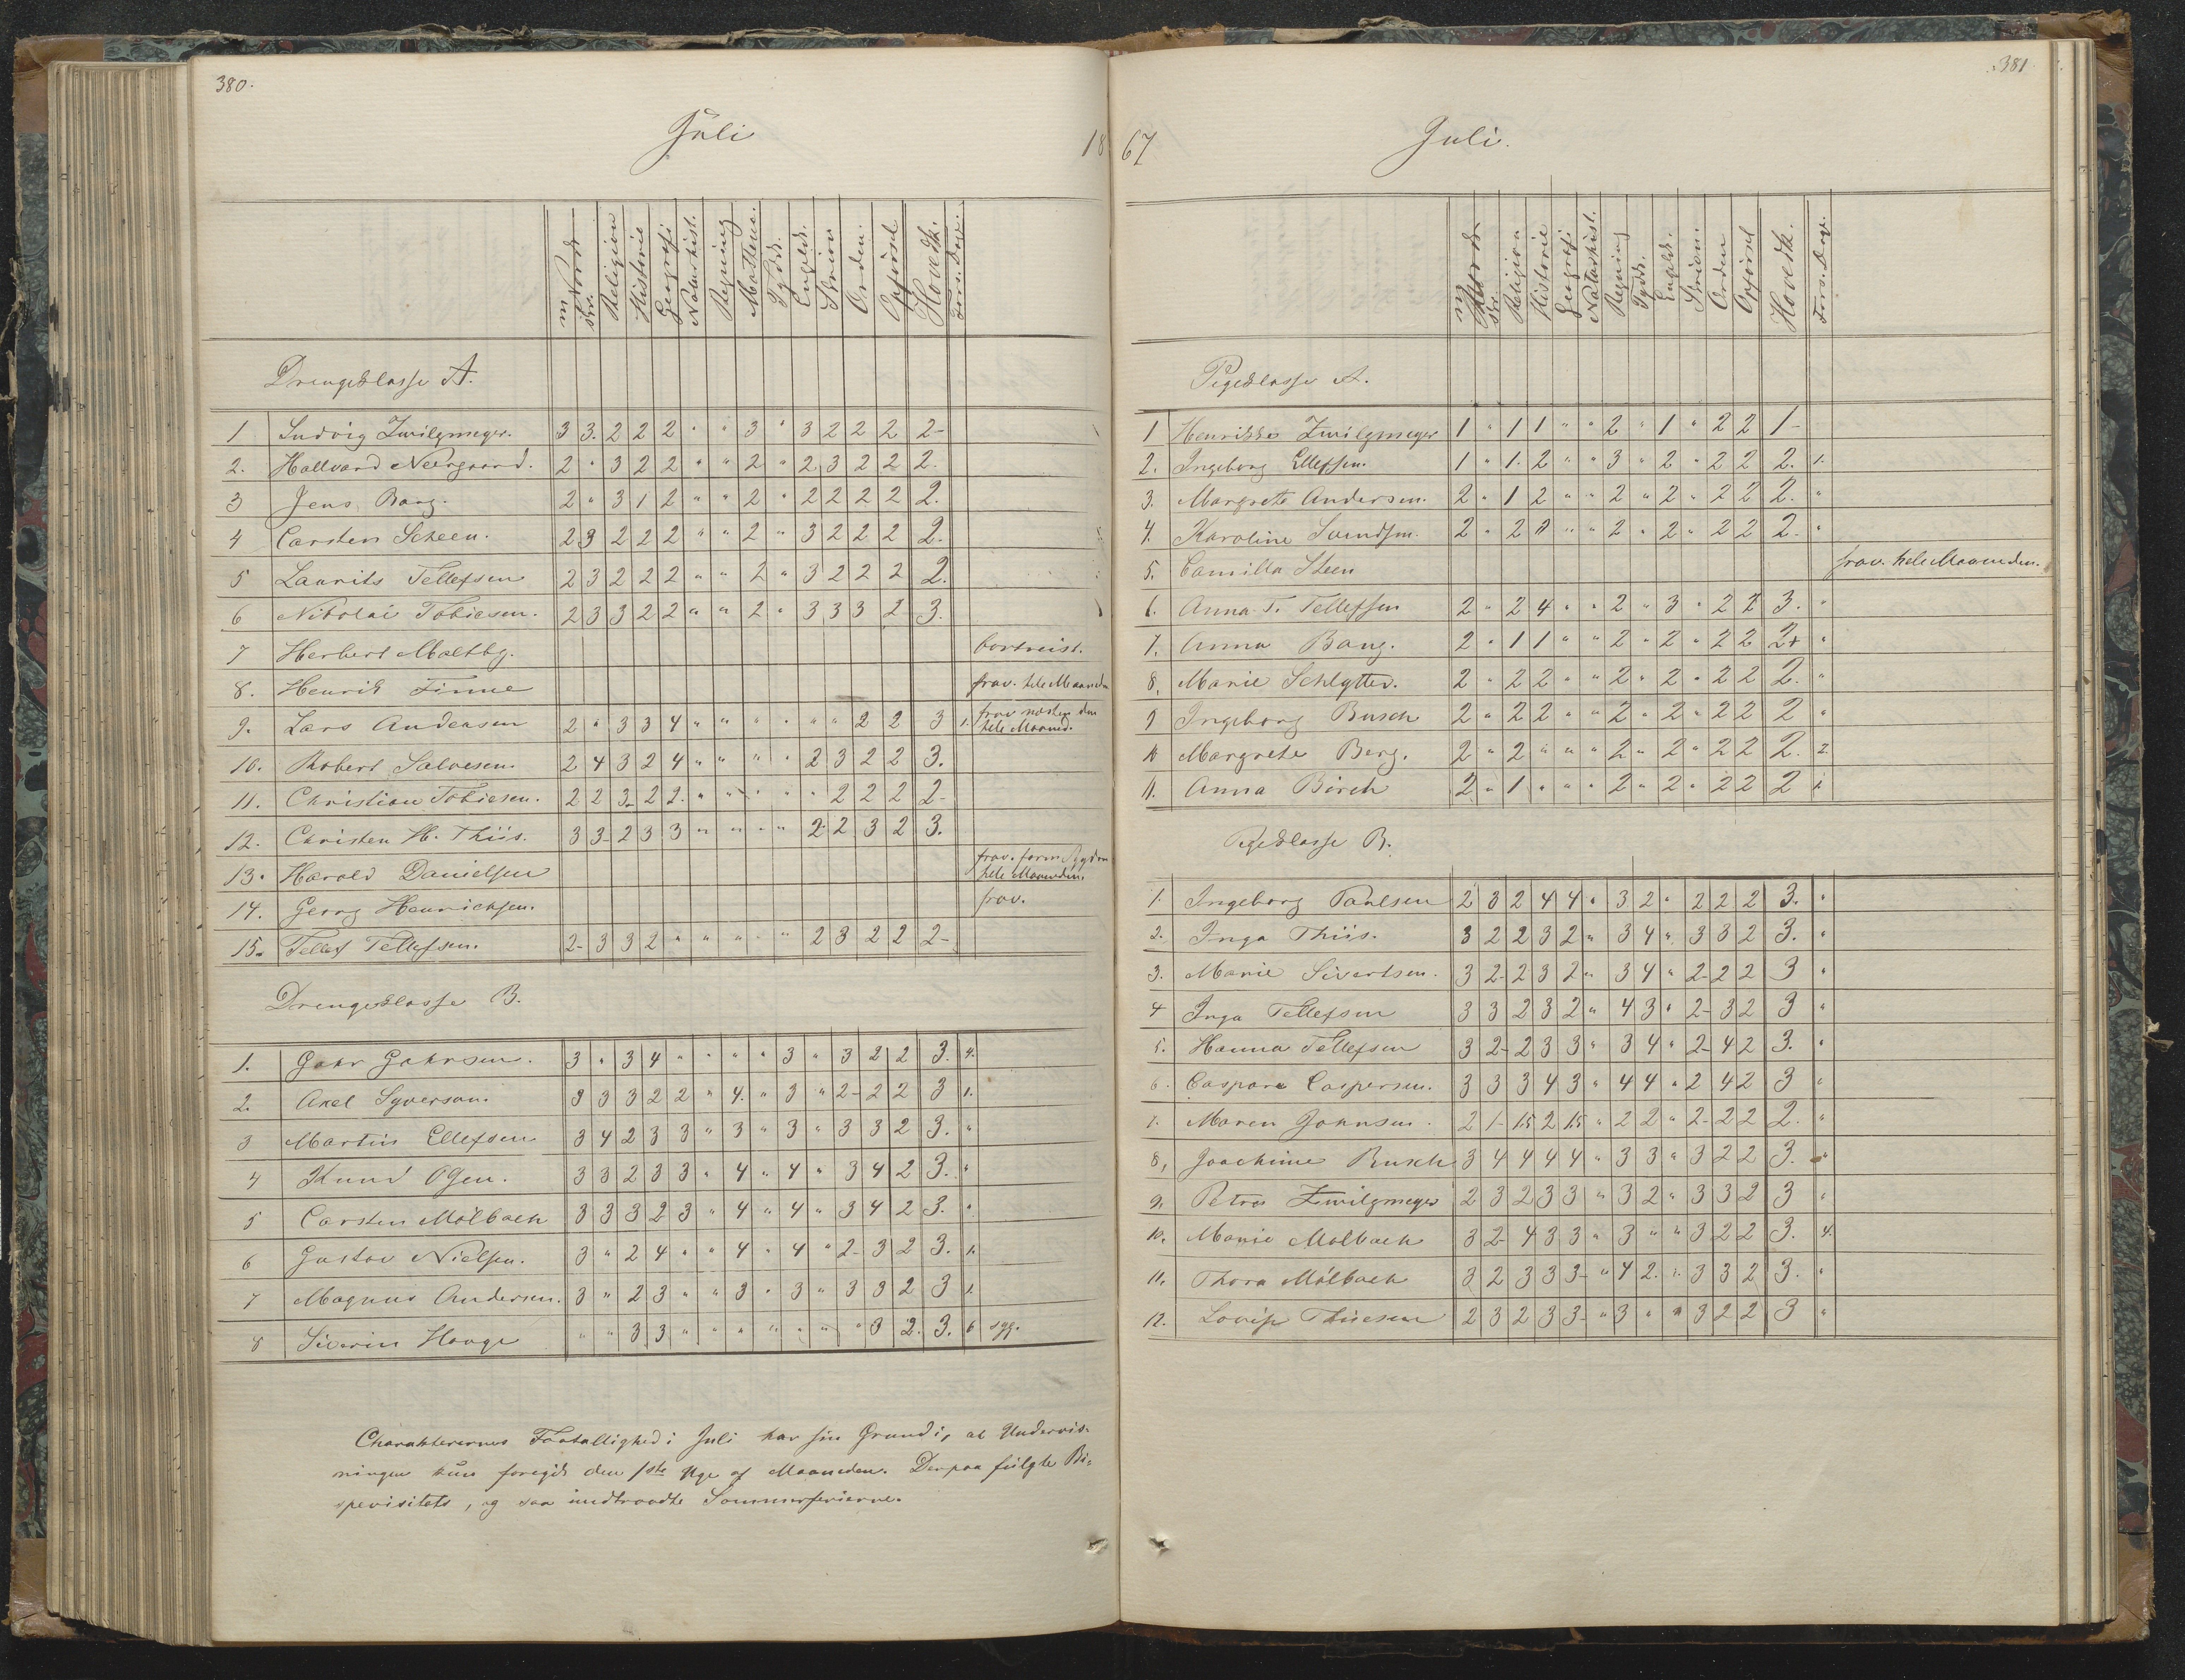 380.
Juli
18
m Norsk
skr.
Religion
Historie
Geografi
Naturhist.
Regning
Mathem.
Tydsk.
Engelsk.
Skrivn
Orden.
Opførsel
Hovedk.
Fors. Dage.
Drengeklasse A.
1 Ludvig Zwilgmeyer. 3 3. 2 2 2 " " 3 " 3 2 2 2 2-
2. Hallvard Neergaard. 2 " 3 2 2 " " 2 " 2 3 2 2 2.
3 Jens Bang. 2 " 3 1 2 " " 2 " 2 2 2 2 2.
4 Carsten Scheen. 2 3 2 2 2 " " 2 " 3 2 2 2 2.
5 Laurits Tellefsen 2 3 2 2 2 " " 2 " 3 2 2 2 2.
6 Nikolai Tobiesen. 2 3 3 2 2 " " 2 " 3 3 3 2 3.
7 Herbert Maltby. bortreist.
8. Henrik Finne frav. hele Maaneden
9. Lars Andersen 2 " 3 3 4 " " " " " " 2 2 3 1. frav næsten den
hele Maaned.
10. Robert Salvesen. 2 4 3 2 4 " " " " 2 3 2 2 3.
11. Christian Tobiesen. 2 2 3- 2 2. " " " " " 2 2 2 2-
12. Christen H. Thiis. 3 3- 2 3 3 " " " " 2- 2 3 2 3.
13. Harald Danielsen frav. form. Sygdom
hele Maaneden.
14. Georg Henrichsen. frav.
15. Tellef Tellefsen. 2- 3 3 2 " " " " " 2 3 2 2 2-
Drengeklasse B.
1. Gahr Gahrsen. 3 " 3 4 " " " " 3 " 3 2 2 3. 4.
2. Axel Syverson. 3 3 3 2 2 " 4. " 3 " 2- 2 2 3 1.
3 Martin Ellefsen 3 4 2 3 3 " 3 " 3 " 3 3 2 3. "
4 Knud Olsen. 3 3 2 3 3 " 4 " 4 " 3 4 2 3. "
5 Carsten Mølbach 3 3 3 2 3 " 4 " 4 " 3 4 2 3. "
6 Gustav Nielsen. 3 " 2 4 " " 4 " 4 " 2- 3 2 3. 1.
7 Magnus Andersen. 3 " 2 3 " " 3 " 3 " 3 3 2 3 1.
8 Siverin Hauge " " 3 3 " " " " " " " 3 2. 3. 6 syg.
Charakterernes Faatallighed i Juli har sin Grund i, at Undervis-
ningen kun foregik den 1ste Uge af Maaneden. Derpaa fulgte Bi-
spevisitats, og saa indtraadte Sommerferierne.
381
67
Juli.
m Norsk
skr.
Religion
Historie
Geografi
Naturhist.
Regning
Tydsk.
Engelsk.
Skrivn.
Orden
Opførsel
Hovedk.
Fors. Dage.
Pigeklasse A.
1 Henrikke Zwilgmeyer 1 " 1 1 " " 2 " 1 " 2 2 1-
2. Ingeborg Ellefsen. 1 " 1. 2 " " 3 " 2 " 2 2 2. 1.
3. Margrete Andersen. 2 " 1 2 " " 2 " 2 " 2 2 2. "
4. Karoline Svendsen. 2 " 2 1 " " 2 " 2 " 2 2 2. "
5. Camilla Steen frav. hele Maaneden.
6. Anna T. Tellefsen 2 " 2 4 " " 2 " 3 " 2 2 3. "
7. Anna Bang. 2 " 1 1 " " 2 " 2 " 2 2 2+ "
8. Marie Schlytter. 2 " 2 2 " " 2 " 2 " 2 2 2. "
9 Ingeborg Busch 2 " 2 2 " " 2 " 2 " 2 2 2 "
10 Margrete Berg. 2 " 2 " " " 2 " 2 " 2 2 2. 2.
11. Anna Birch 2 " 1 " " " 2 " 2 " 2 2 2 1.
Pigeklasse B.
1. Ingeborg Paulsen 2 3 2 4 4 " 3 2 " 2 2 2 3. "
2. Inga Thiis. 3 2 2 3 2 " 3 4 " 3 3 2 3. "
3. Marie Sivertsen. 3 2- 2 3 2 " 3 4 " 2- 2 2 3 "
4 Inga Tellefsen 3 3 2 3 2 " 4 3 " 2- 3 2 3 "
5. Hanna Tellefsen 3 2- 2 3 3 " 3 4 " 2- 4 2 3. "
6. Caspara Caspersen. 3 3 3 4 3 " 4 4 " 2 4 2 3 "
7. Maren Johnsen. 2 1- 1.5 2 1.5 " 2 2 " 2- 2 2 2. "
8. Joachime Busch 3 4 4 4 4 " 3 3 " 3 2 2 3. "
9. Petra Zwilgmeyer 2 3 2 3 3 " 3 2 " 3 3 2 3 "
10. Marie Mølbach 3 2- 4 3 3 " 3 " " 3 2 2 3. 4.
11. Thora Mølbach 3 2 3 3 3- " 4 2. " 3 3 2 3. "
12. Lovise Thiesen 2 3 2 3 3- " 3 " " 3 2 2 3 "